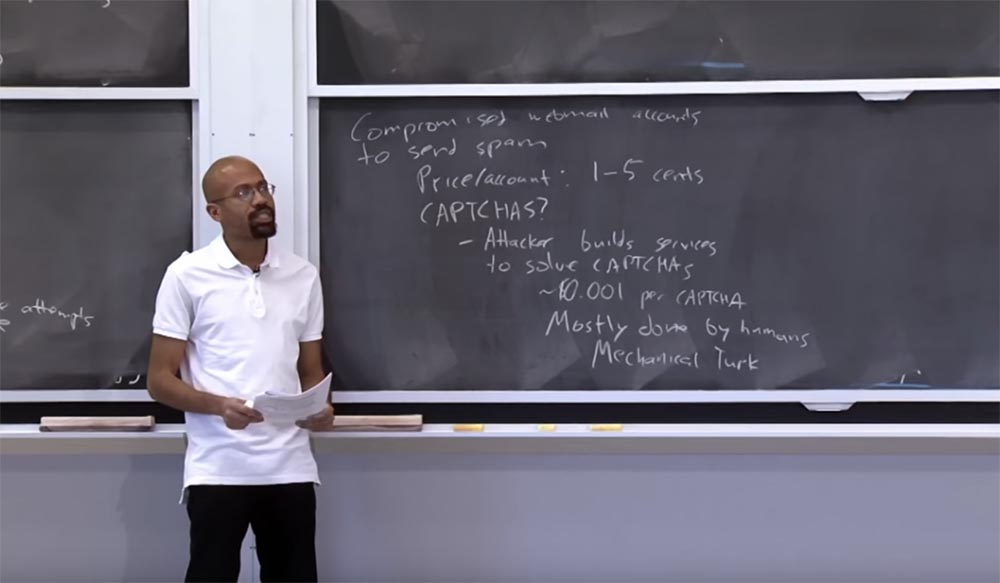 attempts
Compromised webmail accounts
to send spam
Price/account: 1-5 cents
CAPTCHAS?
- Attacker builds services
to solve CAPTCHAs
~$0.001 per CAPTCHA
Mostly done by humans
Mechanical Turk